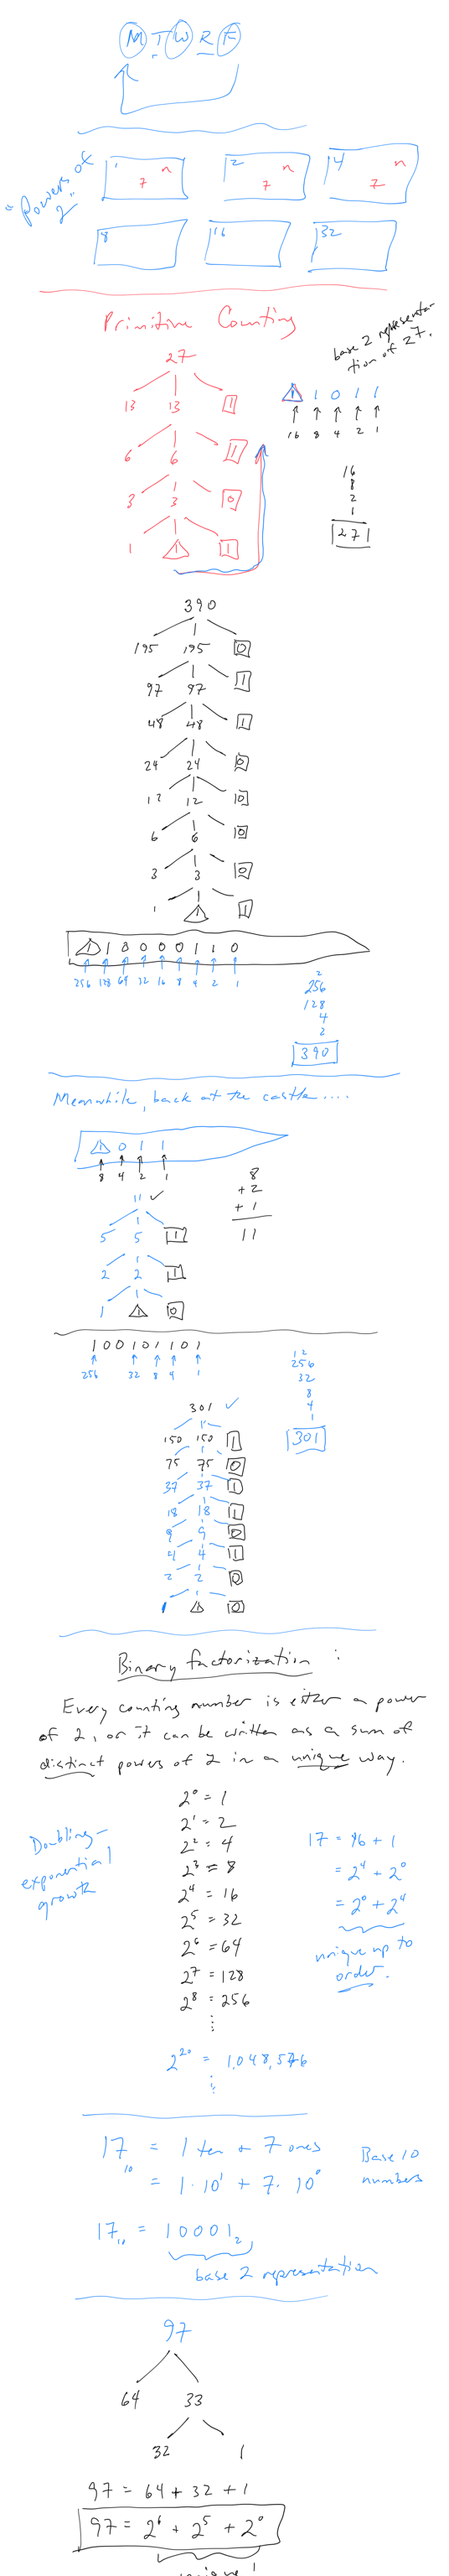 M T W R F
"Powers of
2"
1 n 7
2 n 7
4 n 7
8
16
32
Primitive Counting
base 2 representa-
tion of 27.
27
13 13 1
6 6 1
3 3 0
1 1 1
1 1 0 1 1
16 8 4 2 1
16
8
2
1
27
390
195 195 0
97 97 1
48 48 1
24 24 0
12 12 0
6 6 0
3 3 0
1 1 1
1 1 0 0 0 0 1 1 0
256 128 64 32 16 8 4 2 1
2
256
128
4
2
390
Meanwhile, back at the castle....
1 0 1 1
8 4 2 1
11 ✓
5 5 1
2 2 1
1 1 0
8
+2
+1
11
1 0 0 1 0 1 1 0 1
256 32 8 4 1
1 2
256
32
8
4
1
301
301 ✓
150 150 1
75 75 0
37 37 1
18 18 1
9 9 0
4 4 1
2 2 0
1 1 0
Binary factorization :
Every counting number is either a power
of 2, or it can be written as a sum of
distinct powers of 2 in a unique way.
Doubling-
exponential
growth
2^0 = 1
2^1 = 2
2^2 = 4
2^3 = 8
2^4 = 16
2^5 = 32
2^6 = 64
2^7 = 128
2^8 = 256
⋮
2^20 = 1,048,576
⋮
17 = 16 + 1
= 2^4 + 2^0
= 2^0 + 2^4
unique up to
order.
17_10 = 1 ten + 7 ones
= 1·10^1 + 7·10^0
Base 10
numbers
17_10 = 10001_2
base 2 representation
97
64 33
32 1
97 = 64 + 32 + 1
97 = 2^6 + 2^5 + 2^0
unique!